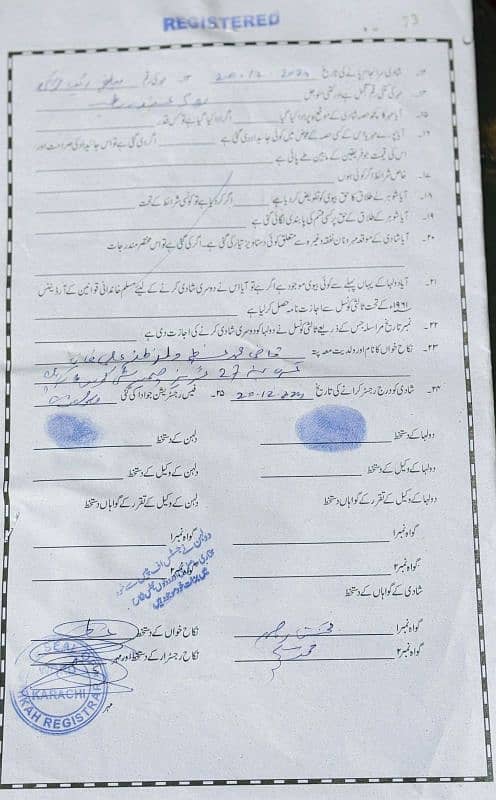 REGISTERED
73
۱۲۔ شادی سرانجام پانے کی تاریخ 20.12.2024 ۱۳۔ مہر کی رقم
۱۴۔ مہر کی کتنی رقم معجل ہے اور کتنی مؤجل
۱۵۔ آیا مہر کا کچھ حصہ شادی کے موقع پر ادا کیا گیا اگر ادا کیا گیا ہے تو کس قدر
۱۶۔ آیا پورے مہر یا اس کے کسی حصہ کے عوض میں کوئی جائیداد دی گئی ہے اگر دی گئی ہے تو اس جائیداد کی صراحت اور
اس کی قیمت جو فریقین کے مابین طے پائی ہے
۱۷۔ خاص شرائط اگر کوئی ہوں
۱۸۔ آیا شوہر نے طلاق کا حق بیوی کو تفویض کر دیا ہے اگر کر دیا ہے تو کونسی شرائط کے تحت
۱۹۔ آیا شوہر کے طلاق کے حق پر کسی قسم کی پابندی لگائی گئی ہے
۲۰۔ آیا شادی کے موقعہ پر مہر و نان نفقہ وغیرہ سے متعلق کوئی دستاویز تیار کی گئی ہے۔ اگر کی گئی ہے تو اس مختصر مندرجات
۲۱۔ آیا دولہا کے یہاں پہلے سے کوئی بیوی موجود ہے اگر ہے تو آیا اس نے دوسری شادی کرنے کے لیئے مسلم خاندانی قوانین کے آرڈیننس
۱۹۶۱ء کے تحت ثالثی کونسل سے اجازت نامہ حاصل کر لیا ہے
۲۲۔ نمبر تاریخ مراسلہ جس کے ذریعے ثالثی کونسل نے دولہا کو دوسری شادی کرنے کی اجازت دی ہے
۲۳۔ نکاح خواں کا نام اور ولدیت معہ پتہ قاضی محمد
27
۲۴۔ شادی کو درج رجسٹر کرانے کی تاریخ 20.12.2024 ۲۵۔ فیس رجسٹریشن جو ادا کی گئی
دولہا کے دستخط دلہن کے دستخط
دولہا کے وکیل کے دستخط دلہن کے وکیل کے دستخط
دولہا کے وکیل کے تقرر کے گواہاں دستخط دلہن کے وکیل کے تقرر کے گواہاں دستخط
گواہ نمبر۱ گواہ نمبر۱
گواہ نمبر۲ گواہ نمبر۲
شادی کے گواہاں کے دستخط
گواہ نمبر۱ نکاح خواں کے دستخط
گواہ نمبر۲ نکاح رجسٹرار کے دستخط اور مہر
مہر
SEAL
KARACHI
NIKAH REGISTRAR